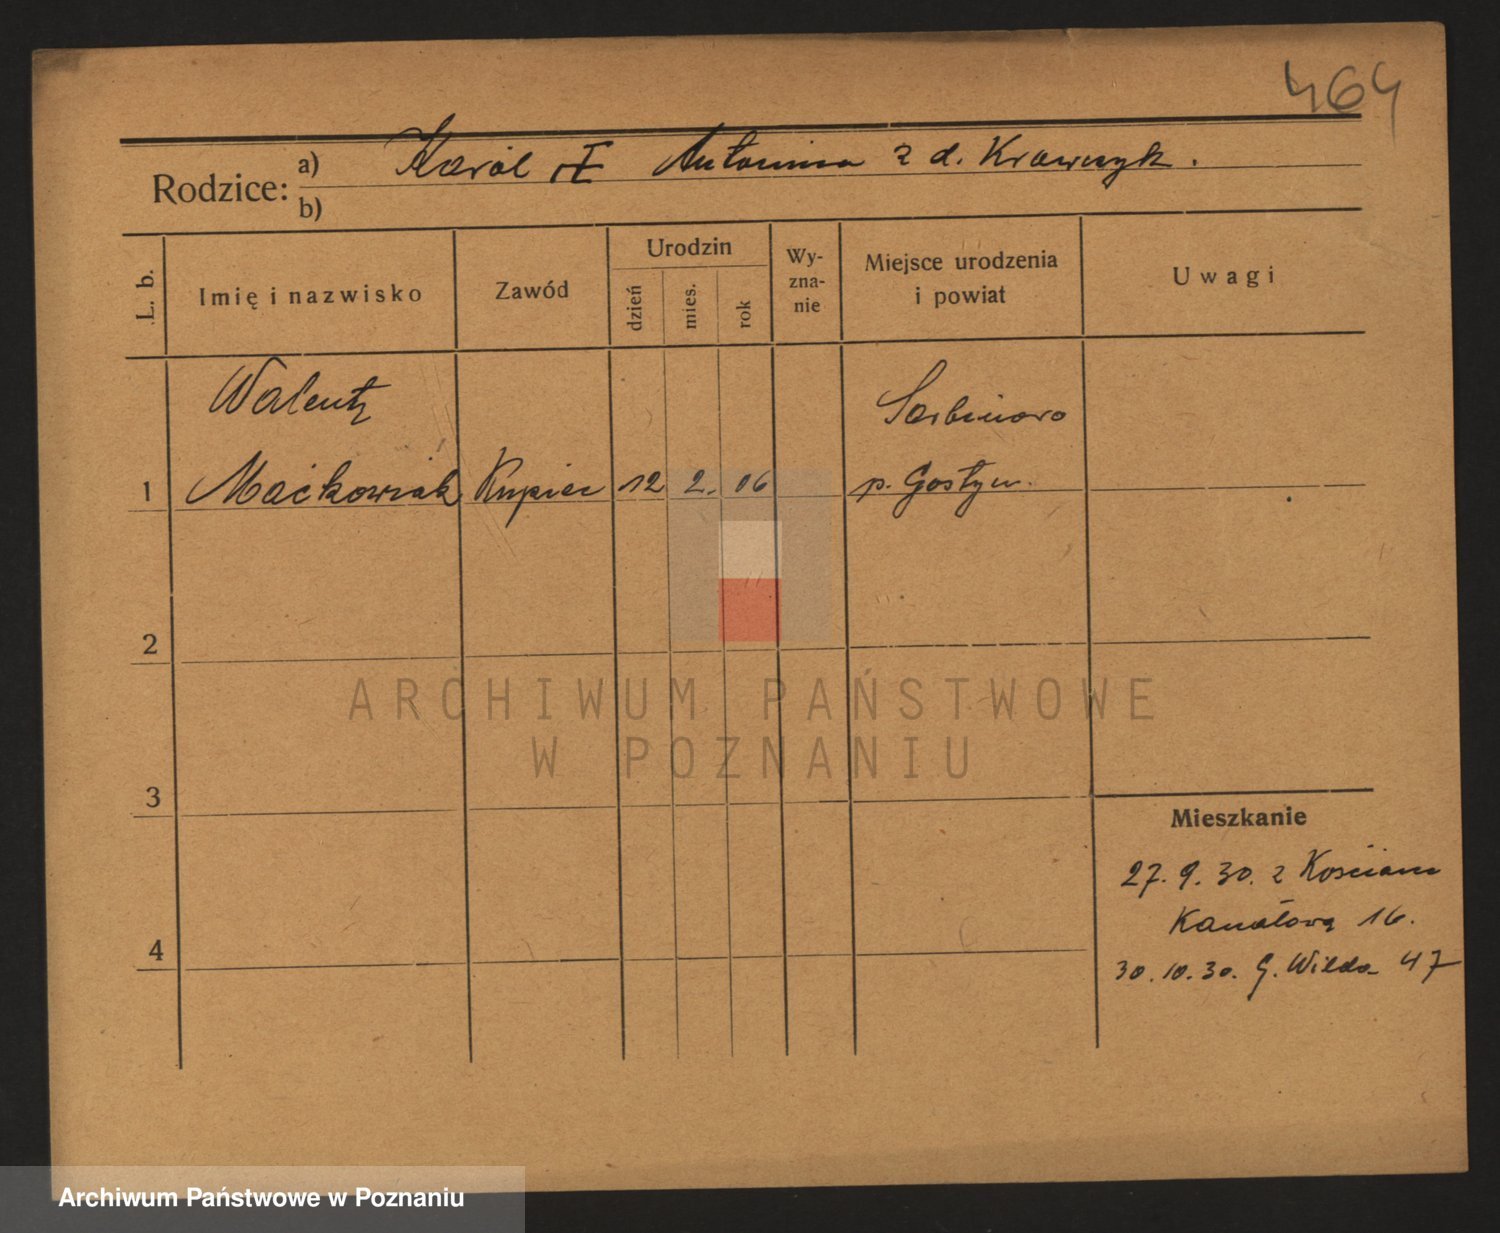 464
Rodzice: a) Karol i Antonina z d. Krawczyk.
b)
L. b. Imię i nazwisko Zawód Urodzin dzień mies. rok Wy-zna-nie Miejsce urodzenia i powiat Uwagi
Walenty Sarbinowo
1 Maćkowiak Kupiec 12 2. 06 p. Gostyń.
2
ARCHIWUM PAŃSTWOWE
W POZNANIU
3
Mieszkanie
27. 9. 30. z Kościana
Kanałowa 16.
4
30. 10. 30. G. Wilda 47
Archiwum Państwowe w Poznaniu